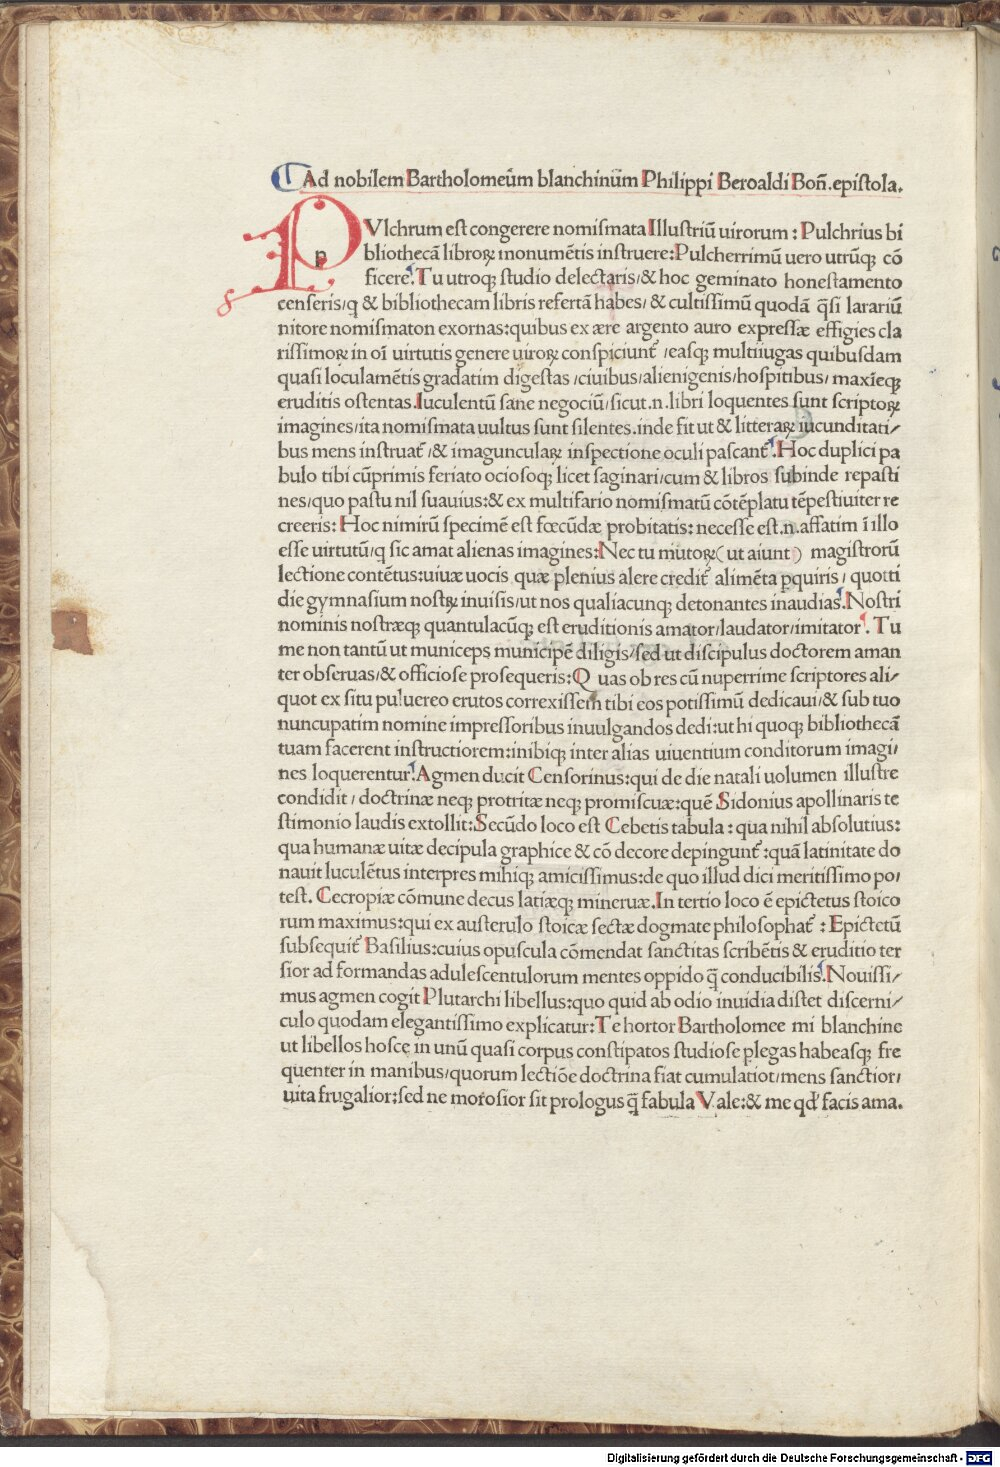 Ad nobilem Bartholomeũm blanchinũm Philippi Beroaldi Boñ.epiſtola.
PVlchrum eſt congerere nomiſmata Illuſtriũ uirorum : Pulchrius bi
bliothecã libroꝝ monumẽtis inſtruere:Pulcherrimũ uero utrũqꝫ cõ
ficere.Tu utroqꝫ ſtudio delectaris/& hoc geminato honeſtamento
cenſeris/q & bibliothecam libris refertã habes/ & cultiſſimũ quodã q̃ſi larariũ
nitore nomiſmaton exornas:quibus ex ære argento auro expreſſæ effigies cla
riſſimoꝝ in oĩ uirtutis genere uiroꝝ conſpiciunt̃ /eaſqꝫ multiiugas quibuſdam
quaſi loculamẽtis gradatim digeſtas /ciuibus/alienigenis/hoſpitibus/ maxĩeqꝫ
eruditis oſtentas.Iuculentũ ſane negociũ/ſicut.n.libri loquentes ſunt ſcriptoꝝ
imagines/ita nomiſmata uultus ſunt ſilentes.inde fit ut & litteraꝝ iucunditati/
bus mens inſtruat̃ /& imagunculaꝝ inſpectione oculi paſcant̃.Hoc duplici pa
bulo tibi cũprimis feriato ocioſoqꝫ licet ſaginari/cum & libros ſubinde repaſti
nes/quo paſtu nil ſuauius:& ex multifario nomiſmatũ cõtẽplatu tẽpeſtiuiter re
creeris: Hoc nimirũ ſpecimẽ eſt fœcũdæ probitatis: neceſſe eſt.n.affatim ĩ illo
eſſe uirtutũ/q ſic amat alienas imagines:Nec tu mutoꝝ( ut aiunt ) magiſtrorũ
lectione contẽtus:uiuæ uocis quæ plenius alere credit̃ alimẽta pquiris / quotti
die gymnaſium noſtꝝ inuiſis/ut nos qualiacunqꝫ detonantes inaudias.Noſtri
nominis noſtræqꝫ quantulacũqꝫ eſt eruditionis amator/laudator/imitator . Tu
me non tantũ ut municeps municipẽ diligis/ſed ut diſcipulus doctorem aman
ter obſeruas/& officioſe proſequeris:Q uas ob res cũ nuperrime ſcriptores ali/
quot ex ſitu puluereo erutos correxiſſem tibi eos potiſſimũ dedicaui/& ſub tuo
nuncupatim nomine impreſſoribus inuulgandos dedi:ut hi quoqꝫ bibliothecã
tuam facerent inſtructiorem:inibiqꝫ inter alias uiuentium conditorum imagi/
nes loquerentur.Agmen ducit Cenſorinus:qui de die natali uolumen illuſtre
condidit / doctrinæ neqꝫ protritæ neqꝫ promiſcuæ:quẽ Sidonius apollinaris te
ſtimonio laudis extollit:Secũdo loco eſt Cebetis tabula : qua nihil abſolutius:
qua humanæ uitæ decipula graphice & cõ decore depingunt̃ :quã latinitate do
nauit luculẽtus interpres mihiqꝫ amiciſſimus:de quo illud dici meritiſſimo po/
teſt. Cecropiæ cõmune decus latiæqꝫ mineruæ.In tertio loco ẽ epictetus ſtoico
rum maximus:qui ex auſterulo ſtoicæ ſectæ dogmate philoſophat̃ : Epictetũ
ſubſequit̃ Baſilius:cuius opuſcula cõmendat ſanctitas ſcribẽtis & eruditio ter
ſior ad formandas aduleſcentulorum mentes oppido q̃ conducibilis.Nouiſſi/
mus agmen cogit Plutarchi libellus:quo quid ab odio inuidia diſtet diſcerni/
culo quodam elegantiſſimo explicatur:Te hortor Bartholomee mi blanchine
ut libellos hoſce in unũ quaſi corpus conſtipatos ſtudioſe plegas habeaſqꝫ fre
quenter in manibus/quorum lectiõe doctrina fiat cumulatiot/mens ſanctior/
uita frugalior:ſed ne moroſior ſit prologus q̃ fabula Vale:& me qd' facis ama.
Digitalisierung gefördert durch die Deutsche Forschungsgemeinschaft - DFG